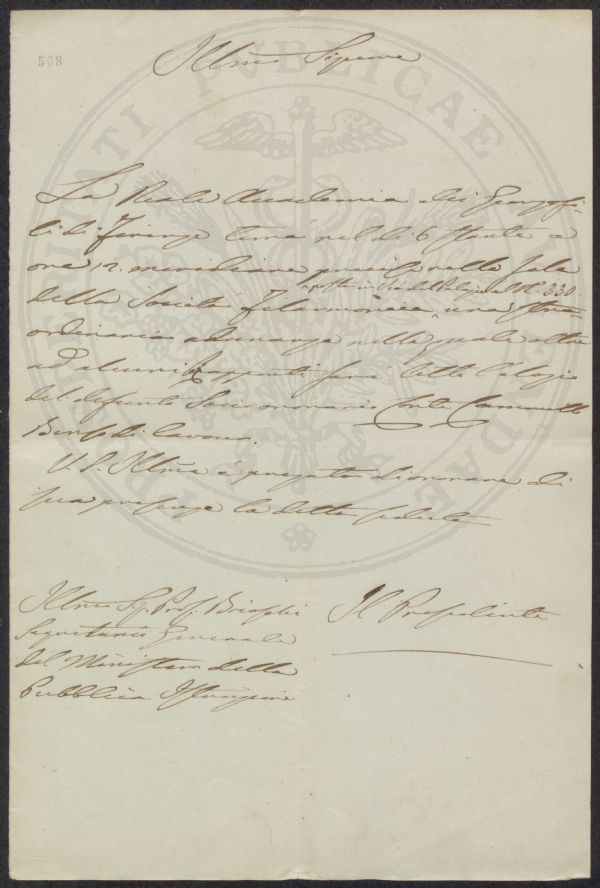 508
Illmo Signore
La Reale Accademia dei Georgofi-
li di Firenze terrà nel dì 6 stante a
ore 12. meridiane precise nella Sala
posta in Via del Palagio al N.º 330
della Società Filarmonica, una stra-
ordinaria adunanza nella quale oltre
ad alcuni Rapporti sarà letto l'Elogio
del defunto Socio onorario Conte Cammillo
Benso di Cavour.
V. S. Illma è pregata di onorare di
sua presenza la detta seduta
Il Presidente
Illmo Sig. Prof. Brioschi
Segretario Generale
del Ministero della
Pubblica Istruzione
PROSPERITATI PUBLICAE AUGENDAE